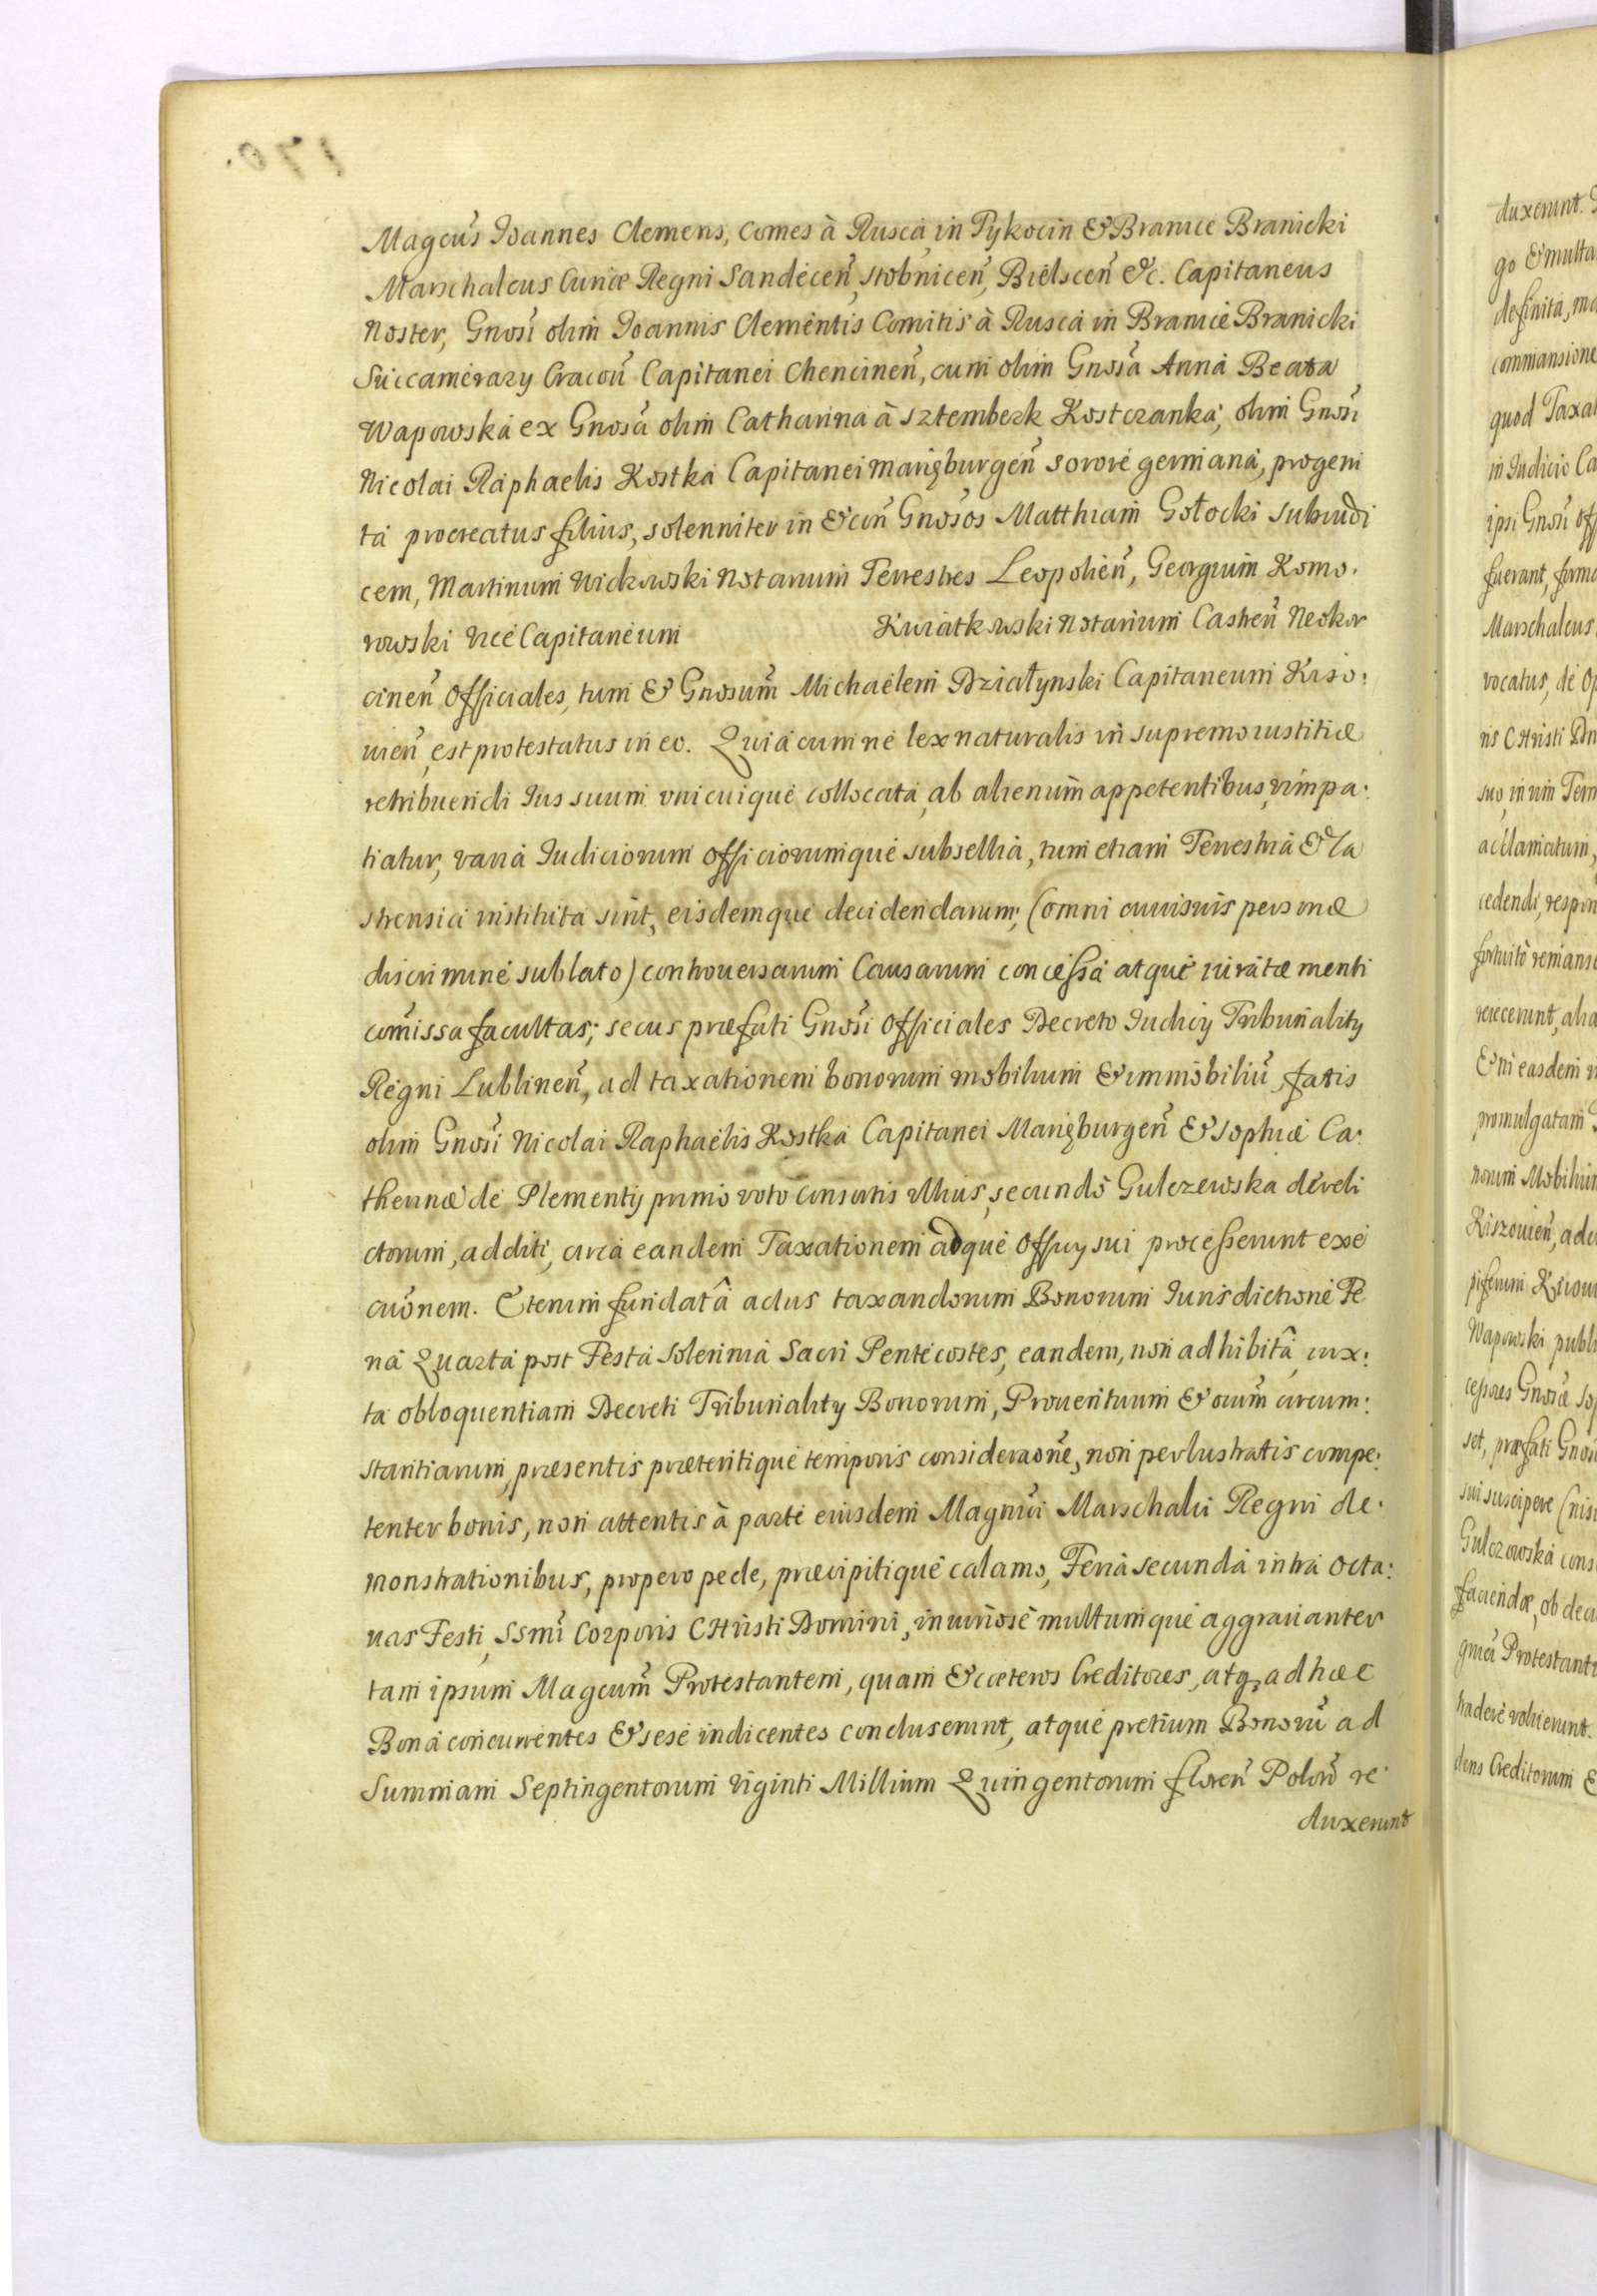 170.
Magcūs Ioannes Clemens, Comes à Rusca in Tykocin & Branice Branicki
Marschalcus Curiæ Regni Sandecen̄, Stobnicen̄, Bielscen̄ &c. Capitaneus
Noster, Gnosī olim Ioannis Clementis Comitis à Rusca in Branice Branicki
Succamerary Cracoū Capitanei Chencinen̄, cum olim Gnosā Anna Beata
Wapowska ex Gnosā olim Catharina à Sztemberk Kostczanka, olim Gnosī
Nicolai Raphaelis Kostka Capitanei Marięburgen̄ sorore germana, progeni
ta procreatus filius, solenniter in & con̄ Gnosōs Matthiam Gołocki Subiudi
cem, Martinum Nickowski Notarium Terrestres Leopolien̄, Georgium Komo.
rowski Vice Capitaneum Kwiatkowski Notarium Castren̄ Neokor
cinen̄ Officiales, tum & Gnosum̄ Michaelem Działynski Capitaneum Kiszo:
uien̄, est protestatus in eo. Quia cum ne lex naturalis in supremo iustitiæ
retribuendi Ius suum vnicuique collocata, ab alienum appetentibus, vim pa:
tiatur, varia Iudiciorum Officiorumque subsellia, tum etiam Terrestria & Ca
strensia instituta sint, eisdemque decidendarum, (omni cuiusuis personæ
discrimine sublato) controuersarum Causarum concessa atque iuratæ menti
com̄issa facultas; secus præfati Gnosī Officiales Decreto Iudicÿ Tribunalitÿ
Regni Lublinen̄, ad taxationem bonorum mobilium & immobiliū, fatis
olim Gnosī Nicolai Raphaelis Kostka Capitanei Marięburgen̄ & Sophiæ Ca:
therinæ de Plementÿ primo voto consortis illius, secundo Gulczewska dereli
ctorum, additi, circa eandem Taxationem adque Officÿ sui processerunt exe
cūonem. Etenim fundatâ actus taxandorum Bonorum Iurisdictione Fe
ria Quarta post Festa Solennia Sacri Pentecostes, eandem, non adhibitâ iux:
ta obloquentiam Decreti Tribunalitÿ Bonorum, Prouentuum & oium̄ circum:
stantiarum, præsentis præteritique temporis consideraōne, non perlustratis compe:
tenter bonis, non attentis à parte eiusdem Magnīci Marschalci Regni de:
monstrationibus, propero pede, præcipitique calamo, Feria secunda intra Octa:
uas Festi SSmī Corporis CHristi Domini, iniuriose multumque aggrauanter
tam ipsum Magcum̄ Protestantem, quam & cæteros Creditores, atq, ad hæc
Bona concurrentes & sese indicentes concluserunt, atque pretium Bonorū ad
Summam Septingentorum Viginti Millium Quingentorum floren̄ Poloń re:
duxerunt
duxerunt.
go & multa
definita, ma
commansione
quod Taxat
in Iudicio Ca
ipsi Gnosī Off
fuerant, forma
Marschalcus
vocatus, de Op
ris CHristi Dn
suo, in vim Term
acclamatum,
cedendi, respon
fortuito remans
reiecerunt, alia
& in easdem
promulgatam
norum Mobilium
Kiszouien̄, ade
Wapowski publi
cessores Gnosæ So
set, præfati Gnosī
sui suscipere (nisi
Gulczowska cons
faciendæ, ob dec
gnīci Protestanti
tradere voluerunt.
dens Creditorum &